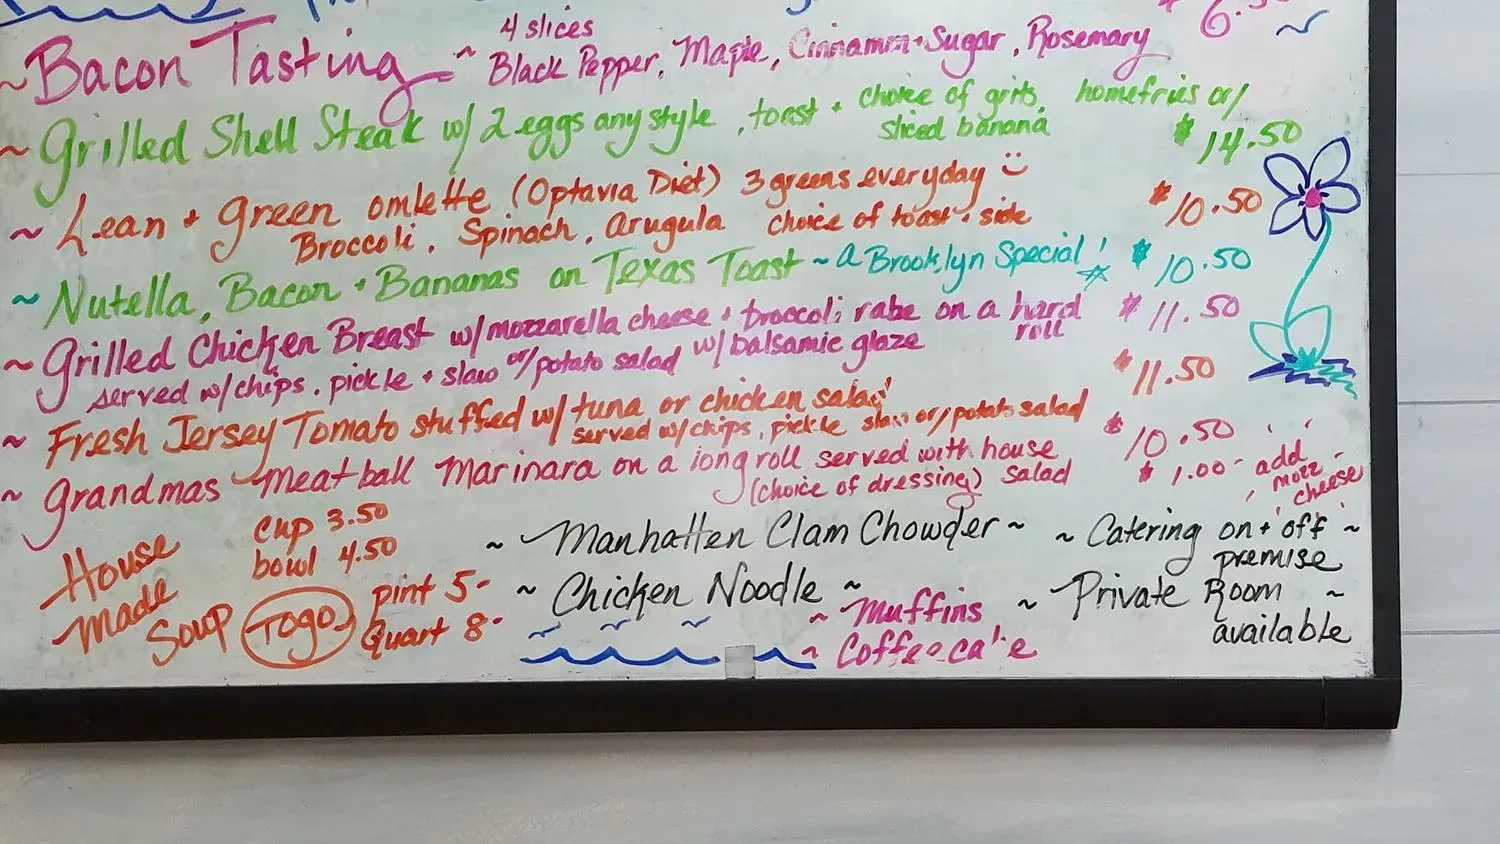 4 slices
~ Bacon Tasting ~ Black Pepper, Maple, Cinnamon + Sugar, Rosemary
~ Grilled Shell Steak w/ 2 eggs any style, toast + choice of grits, homefries or/
sliced banana $14.50
~ Lean + green omlette (Optavia Diet) 3 greens everyday $10.50
Broccoli, Spinach, Arugula choice of toast + side
~ Nutella, Bacon + Bananas on Texas Toast ~ a Brooklyn Special! $10.50
~ Grilled Chicken Breast w/mozzarella cheese + broccoli rabe on a hard roll $11.50
served w/chips, pickle + slaw or/potato salad w/balsamic glaze
~ Fresh Jersey Tomato stuffed w/ tuna or chicken salad $11.50
served w/chips, pickle slaw or/potato salad
~ Grandmas Meatball Marinara on a long roll served with house salad $10.50
(choice of dressing) $1.00- add mozz- cheese
House Made Soup
cup 3.50
bowl 4.50
Togo
pint 5-
Quart 8-
~ Manhatten Clam Chowder ~
~ Chicken Noodle ~
~ Muffins
~ Coffeecake
~ Catering on + off ~
premise
~ Private Room ~
available